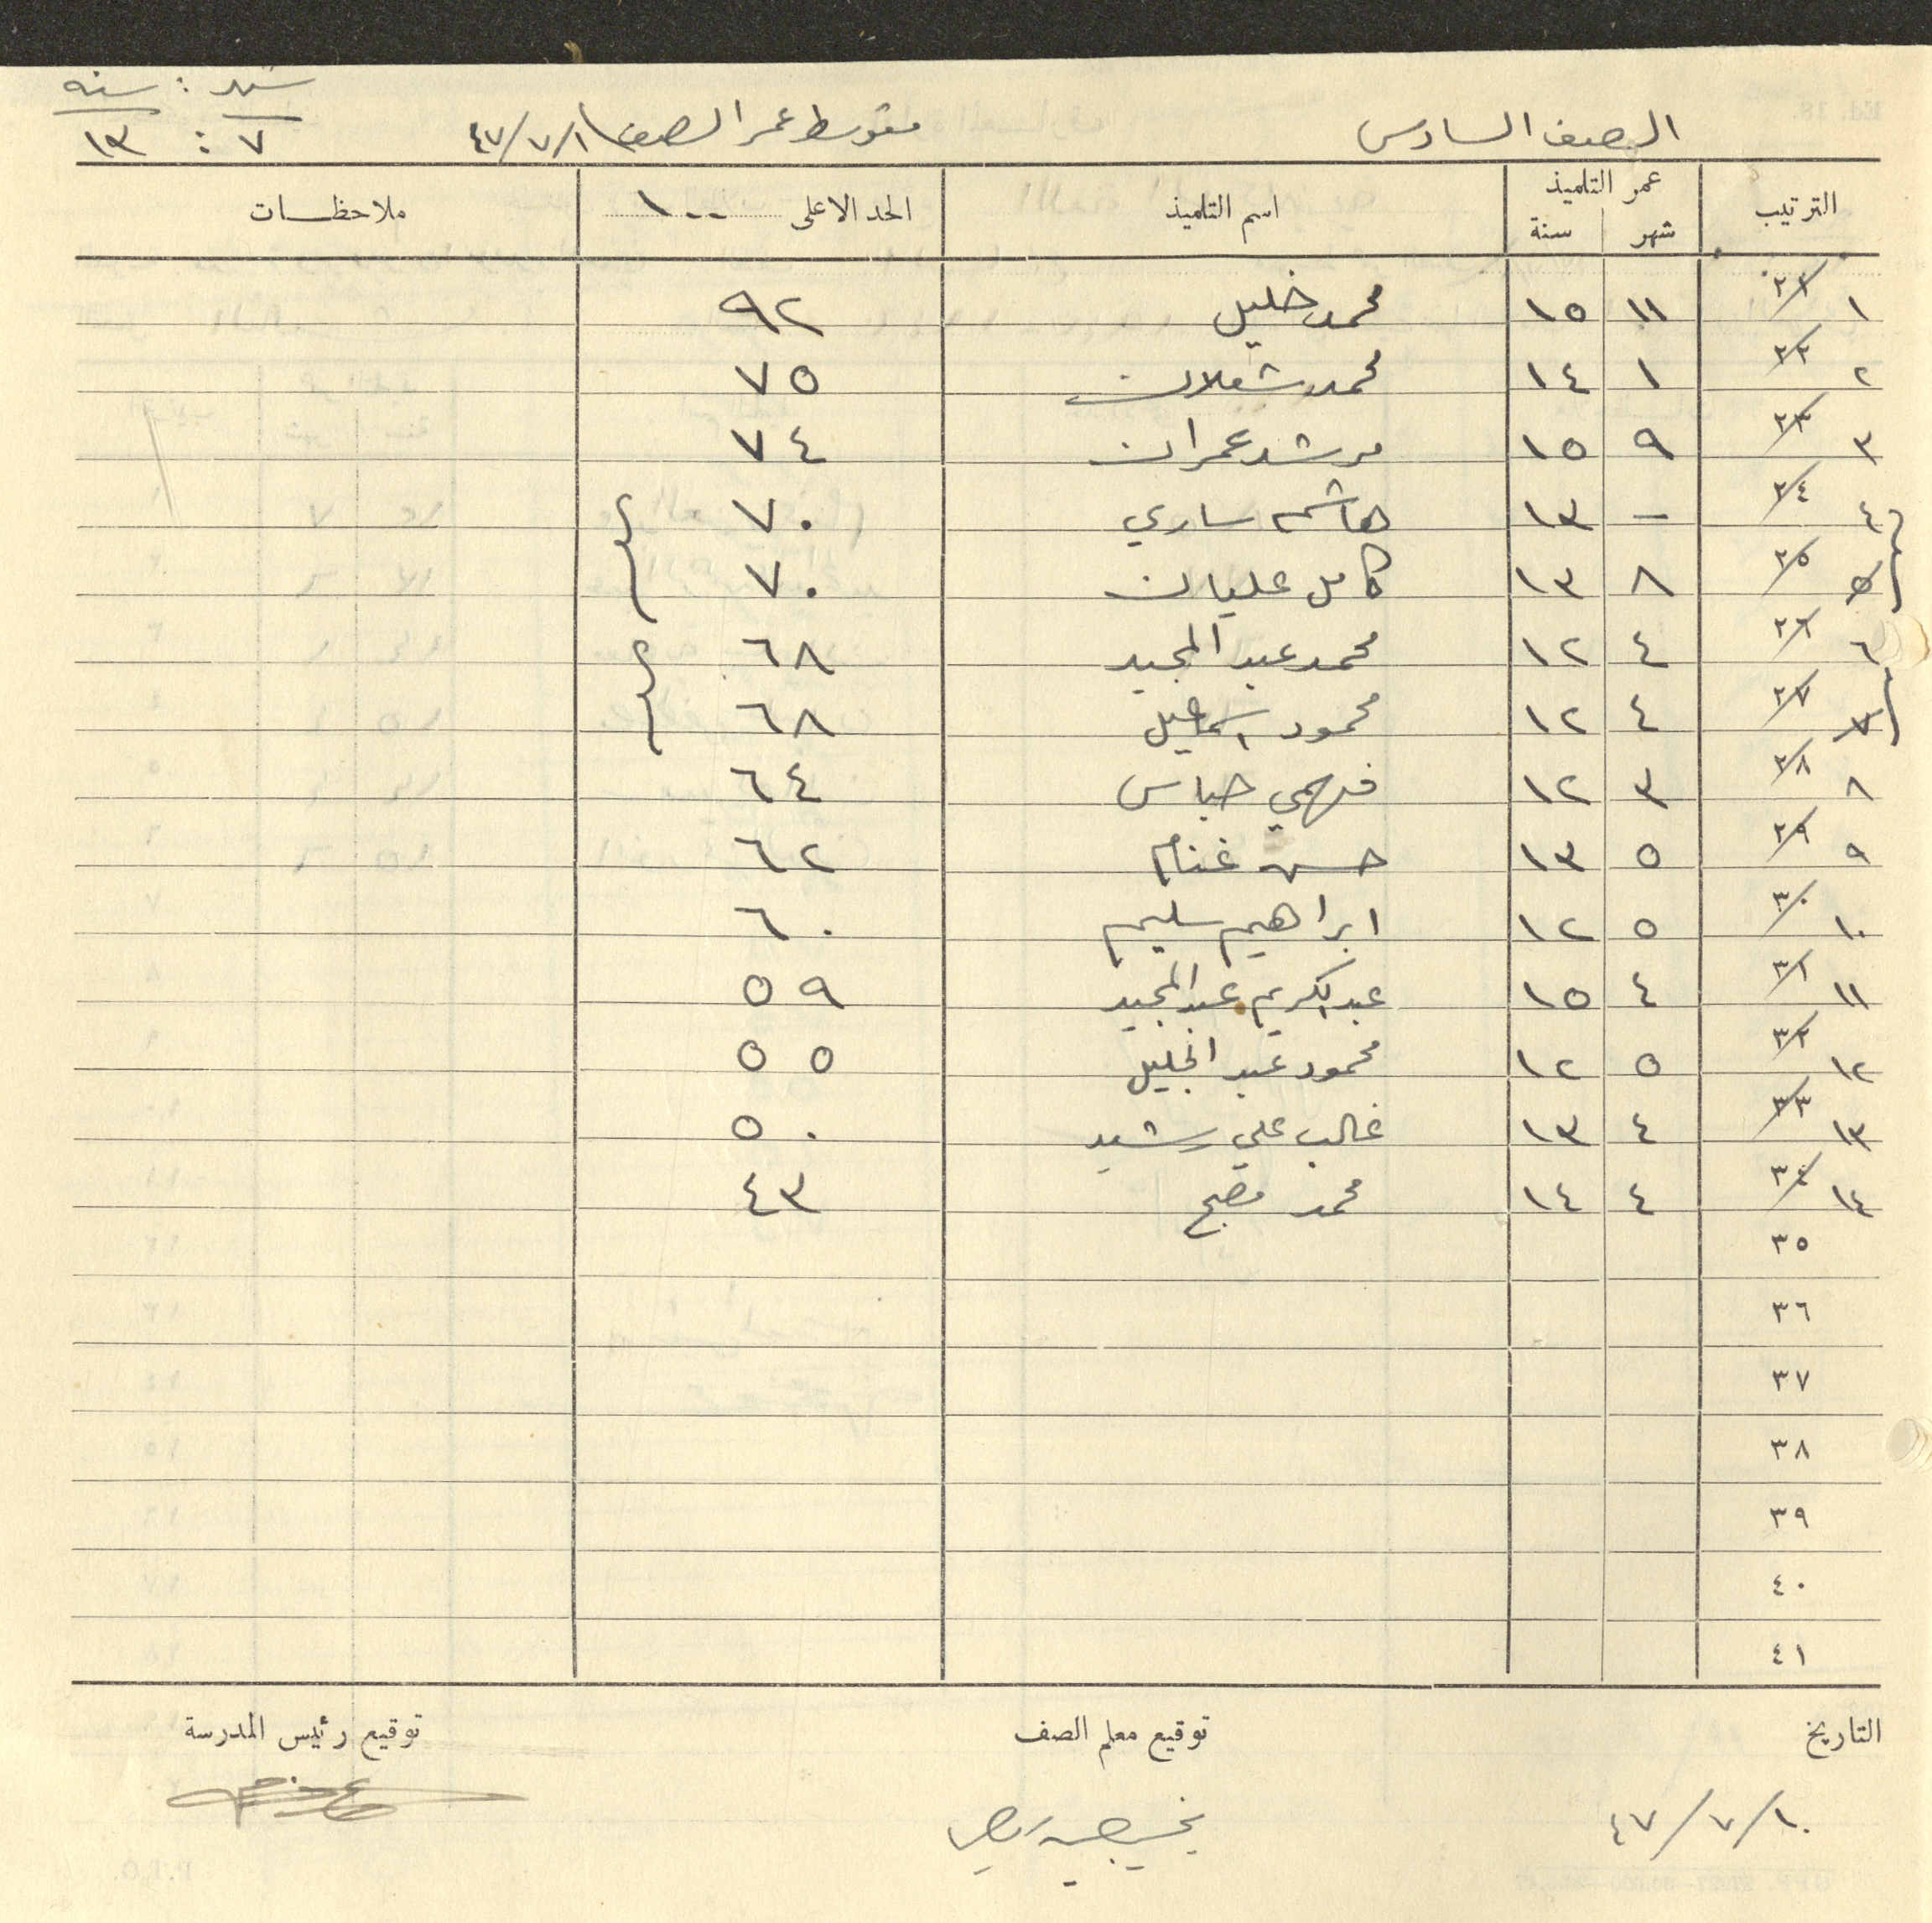 الصف السادس متوسط عمر الصف ١/٧/٤٧ شهر : سنه
٧ : ١٣
الترتيب عمر التلميذ اسم التلميذ الحد الاعلى ١٠٠ ملاحظات
شهر سنة
١ ٢١ ١١ ١٥ محمد خليل ٩٢
٢ ٢٢ ١ ١٤ محمد شعلان ٧٥
٣ ٢٣ ٩ ١٥ مرشد عمران ٧٤
٤ ٢٤ - ١٣ هاشم ساري ٧٠
٥ ٢٥ ٨ ١٣ كامل عليان ٧٠
٦ ٢٦ ٤ ١٢ محمد عبد المجيد ٦٨
٧ ٢٧ ٤ ١٢ محمود اسماعيل ٦٨
٨ ٢٨ ٣ ١٢ فهمي حباس ٦٤
٩ ٢٩ ٥ ١٣ حسن غنام ٦٢
١٠ ٣٠ ٥ ١٢ ابراهيم سليم ٦٠
١١ ٣١ ٤ ١٥ عبد الكريم عبد المجيد ٥٩
١٢ ٣٢ ٥ ١٢ محمود عبد الجليل ٥٥
١٣ ٣٣ ٤ ١٣ غالب علي رشيد ٥٠
١٤ ٣٤ ٤ ١٤ محمد مصبح ٤٣
٣٥
٣٦
٣٧
٣٨
٣٩
٤٠
٤١
التاريخ توقيع معلم الصف توقيع رئيس المدرسة
١٠/٧/٤٧